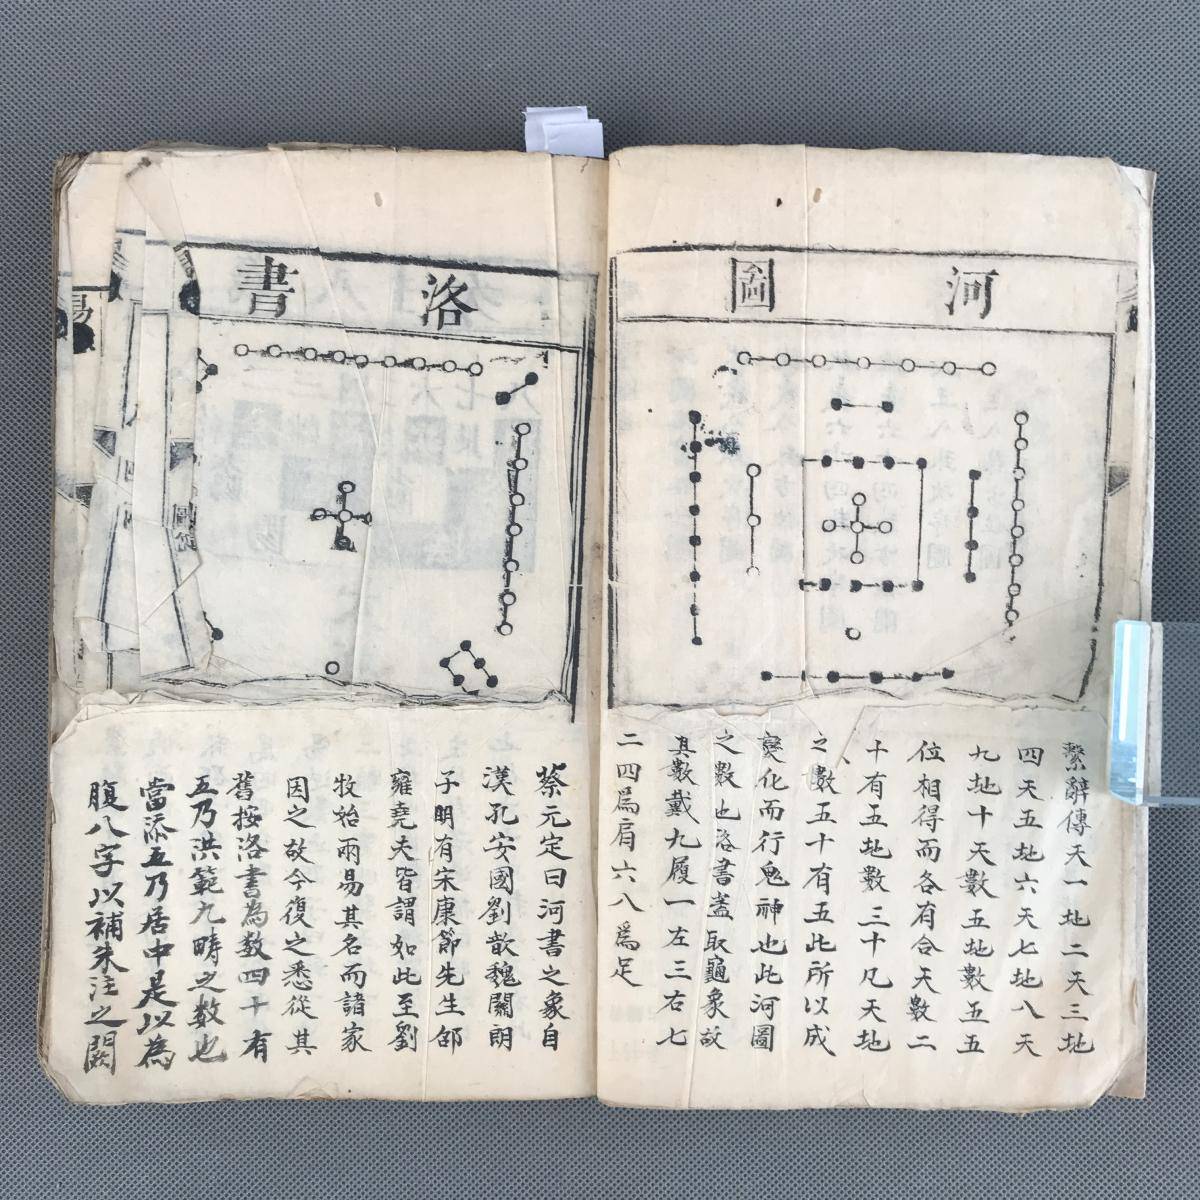 河圖
繫辭傳天一地二天三地
四天五地六天七地八天
九地十天數五地數五五
位相得而各有合天數二
十有五地數三十凡天地
之數五十有五此所以成
變化而行鬼神也此河圖
之數也洛書蓋取龜象故
其數戴九履一左三右七
二四爲肩六八爲足
洛書
蔡元定曰河書之象自
漢孔安國劉歆魏關朗
子明有宋康節先生邵
雍堯夫皆謂如此至劉
牧始兩易其名而諸家
因之故今復之悉從其
舊按洛書為数四十有
五乃洪範九疇之数也
當添五乃居中是以為
腹八字以補朱注之闕
易